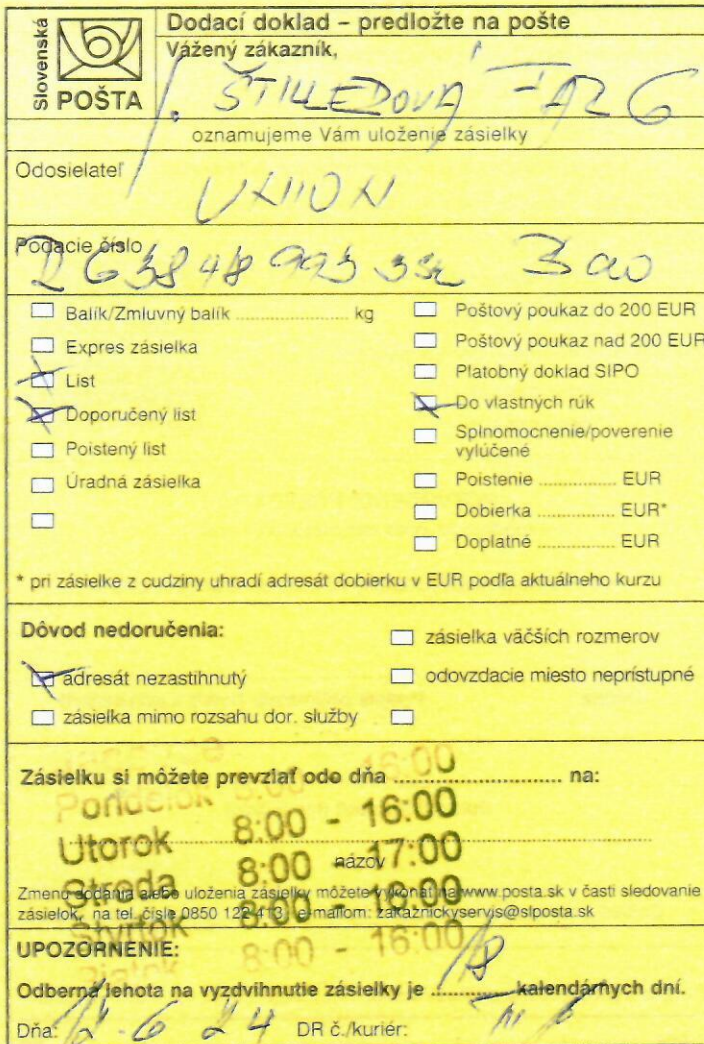 Slovenská
POŠTA
Dodací doklad – predložte na pošte
Vážený zákazník,
oznamujeme Vám uloženie zásielky
Odosielateľ
UNION
Podacie číslo
Balík/Zmluvný balík .................. kg
Expres zásielka
List
Doporučený list
Poistený list
Úradná zásielka
Poštový poukaz do 200 EUR
Poštový poukaz nad 200 EUR
Platobný doklad SIPO
Do vlastných rúk
Splnomocnenie/poverenie
vylúčené
Poistenie ................ EUR
Dobierka ................ EUR*
Doplatné ................ EUR
* pri zásielke z cudziny uhradí adresát dobierku v EUR podľa aktuálneho kurzu
Dôvod nedoručenia:
adresát nezastihnutý
zásielka mimo rozsahu dor. služby
zásielka väčších rozmerov
odovzdacie miesto neprístupné
Zásielku si môžete prevziať odo dňa .......................... na:
Pondelok 8:00 - 16:00
Utorok 8:00 - 16:00
názov
Streda 8:00 - 17:00
Zmenu dodania alebo uloženia zásielky môžete vykonať na www.posta.sk v časti sledovanie
zásielok, na tel. čísle 0850 122 413, e-mailom: zakaznickyservis@slposta.sk
Štvrtok 8:00 - 16:00
Piatok 8:00 - 16:00
UPOZORNENIE:
Odberná lehota na vyzdvihnutie zásielky je 18 kalendárnych dní.
Dňa: DR č./kuriér: